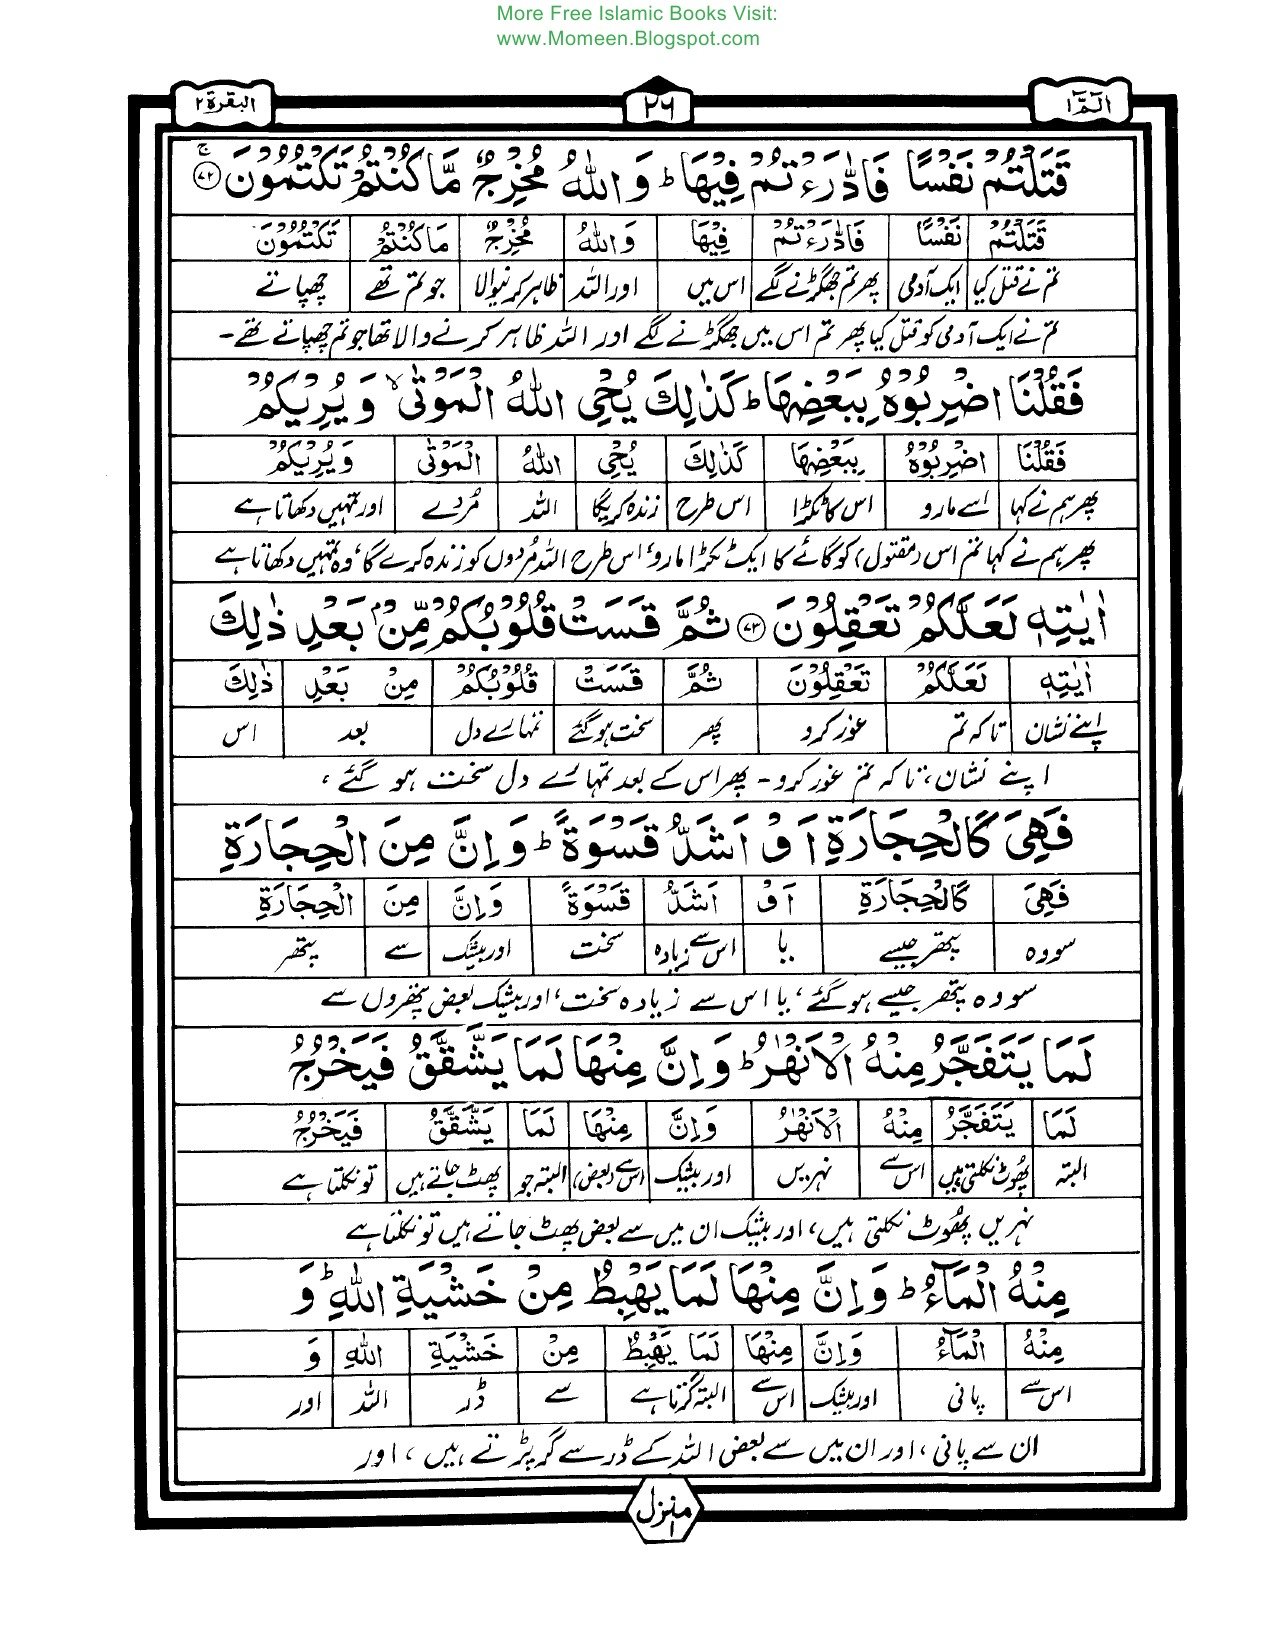 More Free Islamic Books Visit:
www.Momeen.Blogspot.com
الٓمّٓ ۱ ۲۶ البقرة ۲
قَتَلْتُمْ نَفْسًا فَادّٰرَءْتُمْ فِيْهَا ؕ وَ اللّٰهُ مُخْرِجٌ مَّا كُنْتُمْ تَكْتُمُوْنَ ۚ﴿۷۲﴾
قَتَلْتُمْ نَفْسًا فَادّٰرَءْتُمْ فِيْهَا وَ اللّٰهُ مُخْرِجٌ مَا كُنْتُمْ تَكْتُمُوْنَ
تم نے قتل کیا ایک آدمی پھر تم جھگڑنے لگے اس میں اور اللہ ظاہر کرنیوالا جو تم تھے چھپاتے
تم نے ایک آدمی کو قتل کیا پھر تم اس میں جھگڑنے لگے اور اللہ ظاہر کرنے والا تھا جو تم چھپاتے تھے۔
فَقُلْنَا اضْرِبُوْهُ بِبَعْضِهَا ؕ كَذٰلِكَ يُحْيِ اللّٰهُ الْمَوْتٰى ۙ وَ يُرِيْكُمْ
فَقُلْنَا اضْرِبُوْهُ بِبَعْضِهَا كَذٰلِكَ يُحْيِ اللّٰهُ الْمَوْتٰى وَيُرِيْكُمْ
پھر ہم نے کہا اسے مارو اس کا ٹکڑا اس طرح زندہ کریگا اللہ مُردے اور تمہیں دکھاتا ہے
پھر ہم نے کہا تم اس (مقتول) کو گائے کا ایک ٹکڑا مارو، اس طرح اللہ مُردوں کو زندہ کرے گا، وہ تمہیں دکھاتا ہے
اٰيٰتِهٖ لَعَلَّكُمْ تَعْقِلُوْنَ ﴿۷۳﴾ ثُمَّ قَسَتْ قُلُوْبُكُمْ مِّنْۢ بَعْدِ ذٰلِكَ
اٰيٰتِهٖ لَعَلَّكُمْ تَعْقِلُوْنَ ثُمَّ قَسَتْ قُلُوْبُكُمْ مِنْ بَعْدِ ذٰلِكَ
اپنے نشان تاکہ تم غور کرو پھر سخت ہو گئے تمہارے دل بعد اس
اپنے نشان، تاکہ تم غور کرو۔ پھر اس کے بعد تمہارے دل سخت ہو گئے،
فَهِيَ كَالْحِجَارَةِ اَوْ اَشَدُّ قَسْوَةً ؕ وَ اِنَّ مِنَ الْحِجَارَةِ
فَهِيَ كَالْحِجَارَةِ اَوْ اَشَدُّ قَسْوَةً وَاِنَّ مِنَ الْحِجَارَةِ
سو وہ پتھر جیسے یا اس سے زیادہ سخت اور بیشک سے پتھر
سو وہ پتھر جیسے ہو گئے، یا اس سے زیادہ سخت، اور بیشک بعض پتھروں سے
لَمَا يَتَفَجَّرُ مِنْهُ الْاَنْهٰرُ ؕ وَ اِنَّ مِنْهَا لَمَا يَشَّقَّقُ فَيَخْرُجُ
لَمَا يَتَفَجَّرُ مِنْهُ الْاَنْهٰرُ وَاِنَّ مِنْهَا لَمَا يَشَّقَّقُ فَيَخْرُجُ
البتہ پھوٹ نکلتی ہیں اس سے نہریں اور بیشک اس سے (بعض) البتہ جو پھٹ جاتے ہیں تو نکلتا ہے
نہریں پھُوٹ نکلتی ہیں، اور بیشک ان میں سے بعض پھٹ جاتے ہیں تو نکلتا ہے
مِنْهُ الْمَآءُ ؕ وَ اِنَّ مِنْهَا لَمَا يَهْبِطُ مِنْ خَشْيَةِ اللّٰهِ ؕ وَ
مِنْهُ الْمَآءُ وَاِنَّ مِنْهَا لَمَا يَهْبِطُ مِنْ خَشْيَةِ اللّٰهِ وَ
اس سے پانی اور بیشک اس سے البتہ گرتا ہے سے ڈر اللہ اور
ان سے پانی، اور ان میں سے بعض اللہ کے ڈر سے گر پڑتے ہیں، اور
منزل ۱